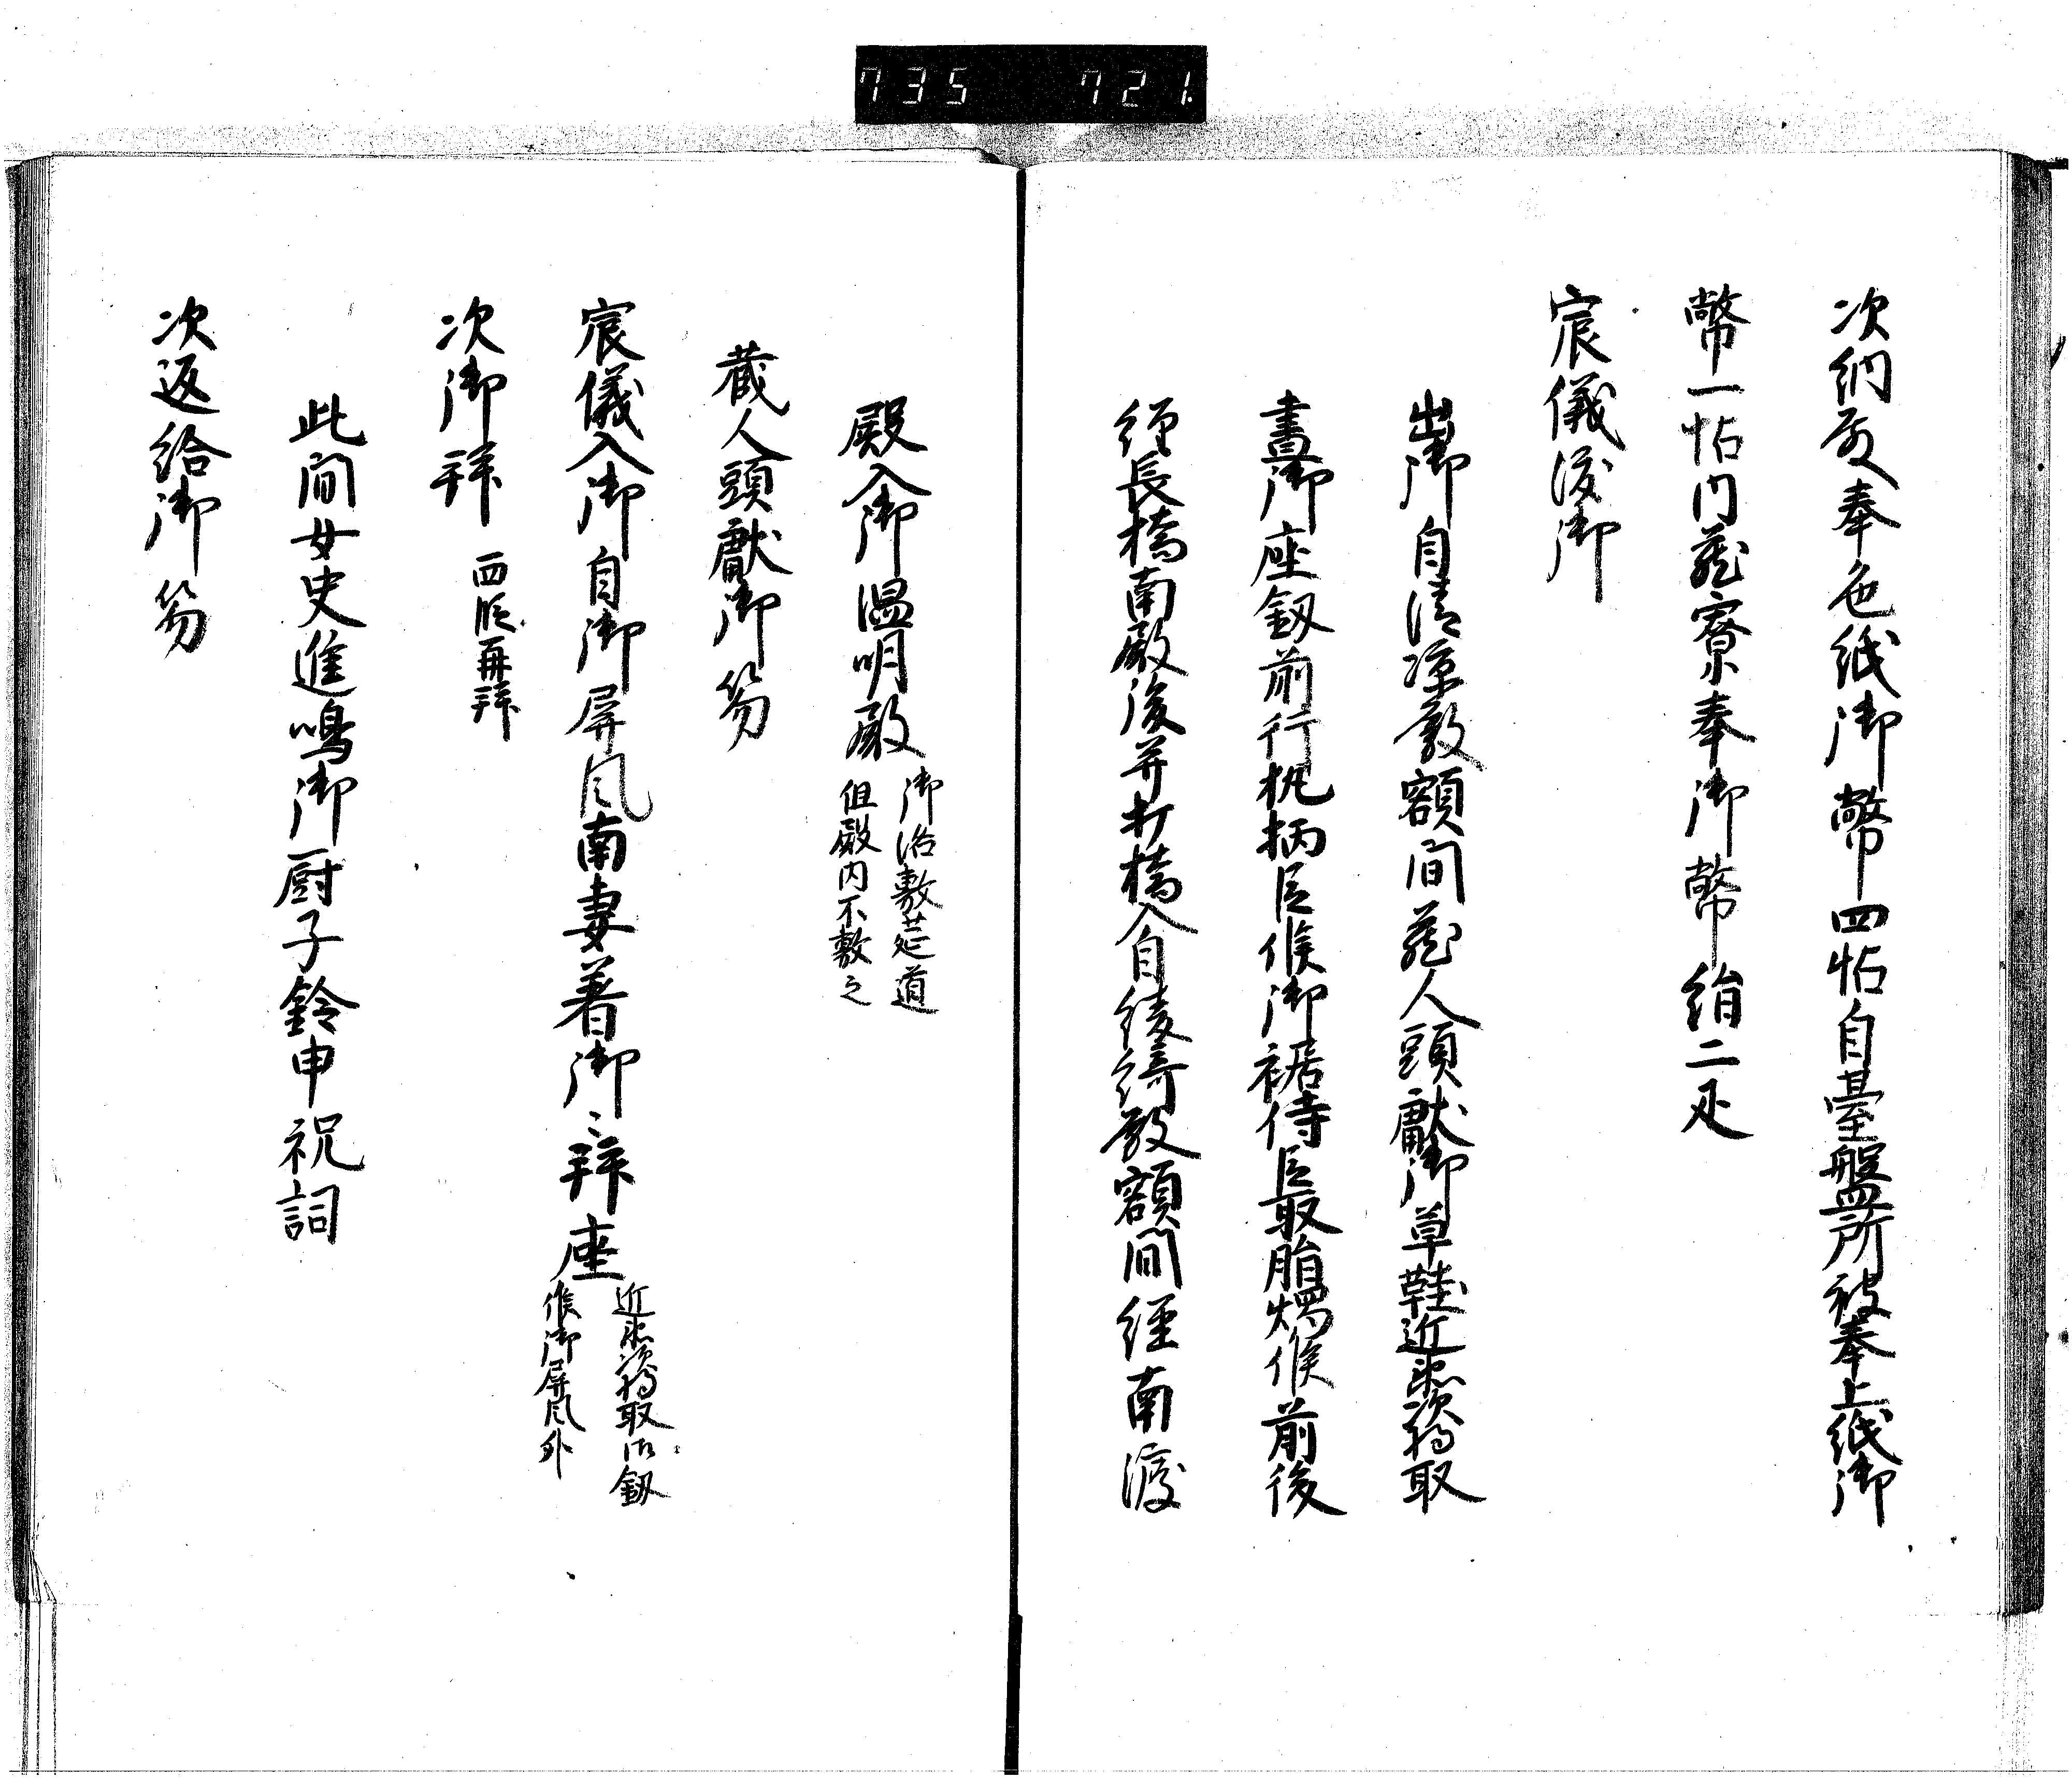 735 721.
次納殿奉色紙御幣四帖自臺盤所被奉上紙御
幣一帖内蔵寮奉御幣絹二疋
宸儀渡御
出御自清凉殿額間蔵人頭獻御草鞋近衛次将取
晝御座釼前行執柄臣候御裾侍臣取脂燭候前後
經長橋南殿後并打橋入自綾綺殿額間經南渡
殿入御温明殿
御路敷莚道
但殿内不敷之
蔵人頭獻御笏
宸儀入御自御屏風南妻着御〻拜座
近衛次将取御釼
候御屏風外
次御拜
四段再拜
此間女史進鳴御厨子鈴申祝詞
次返給御笏